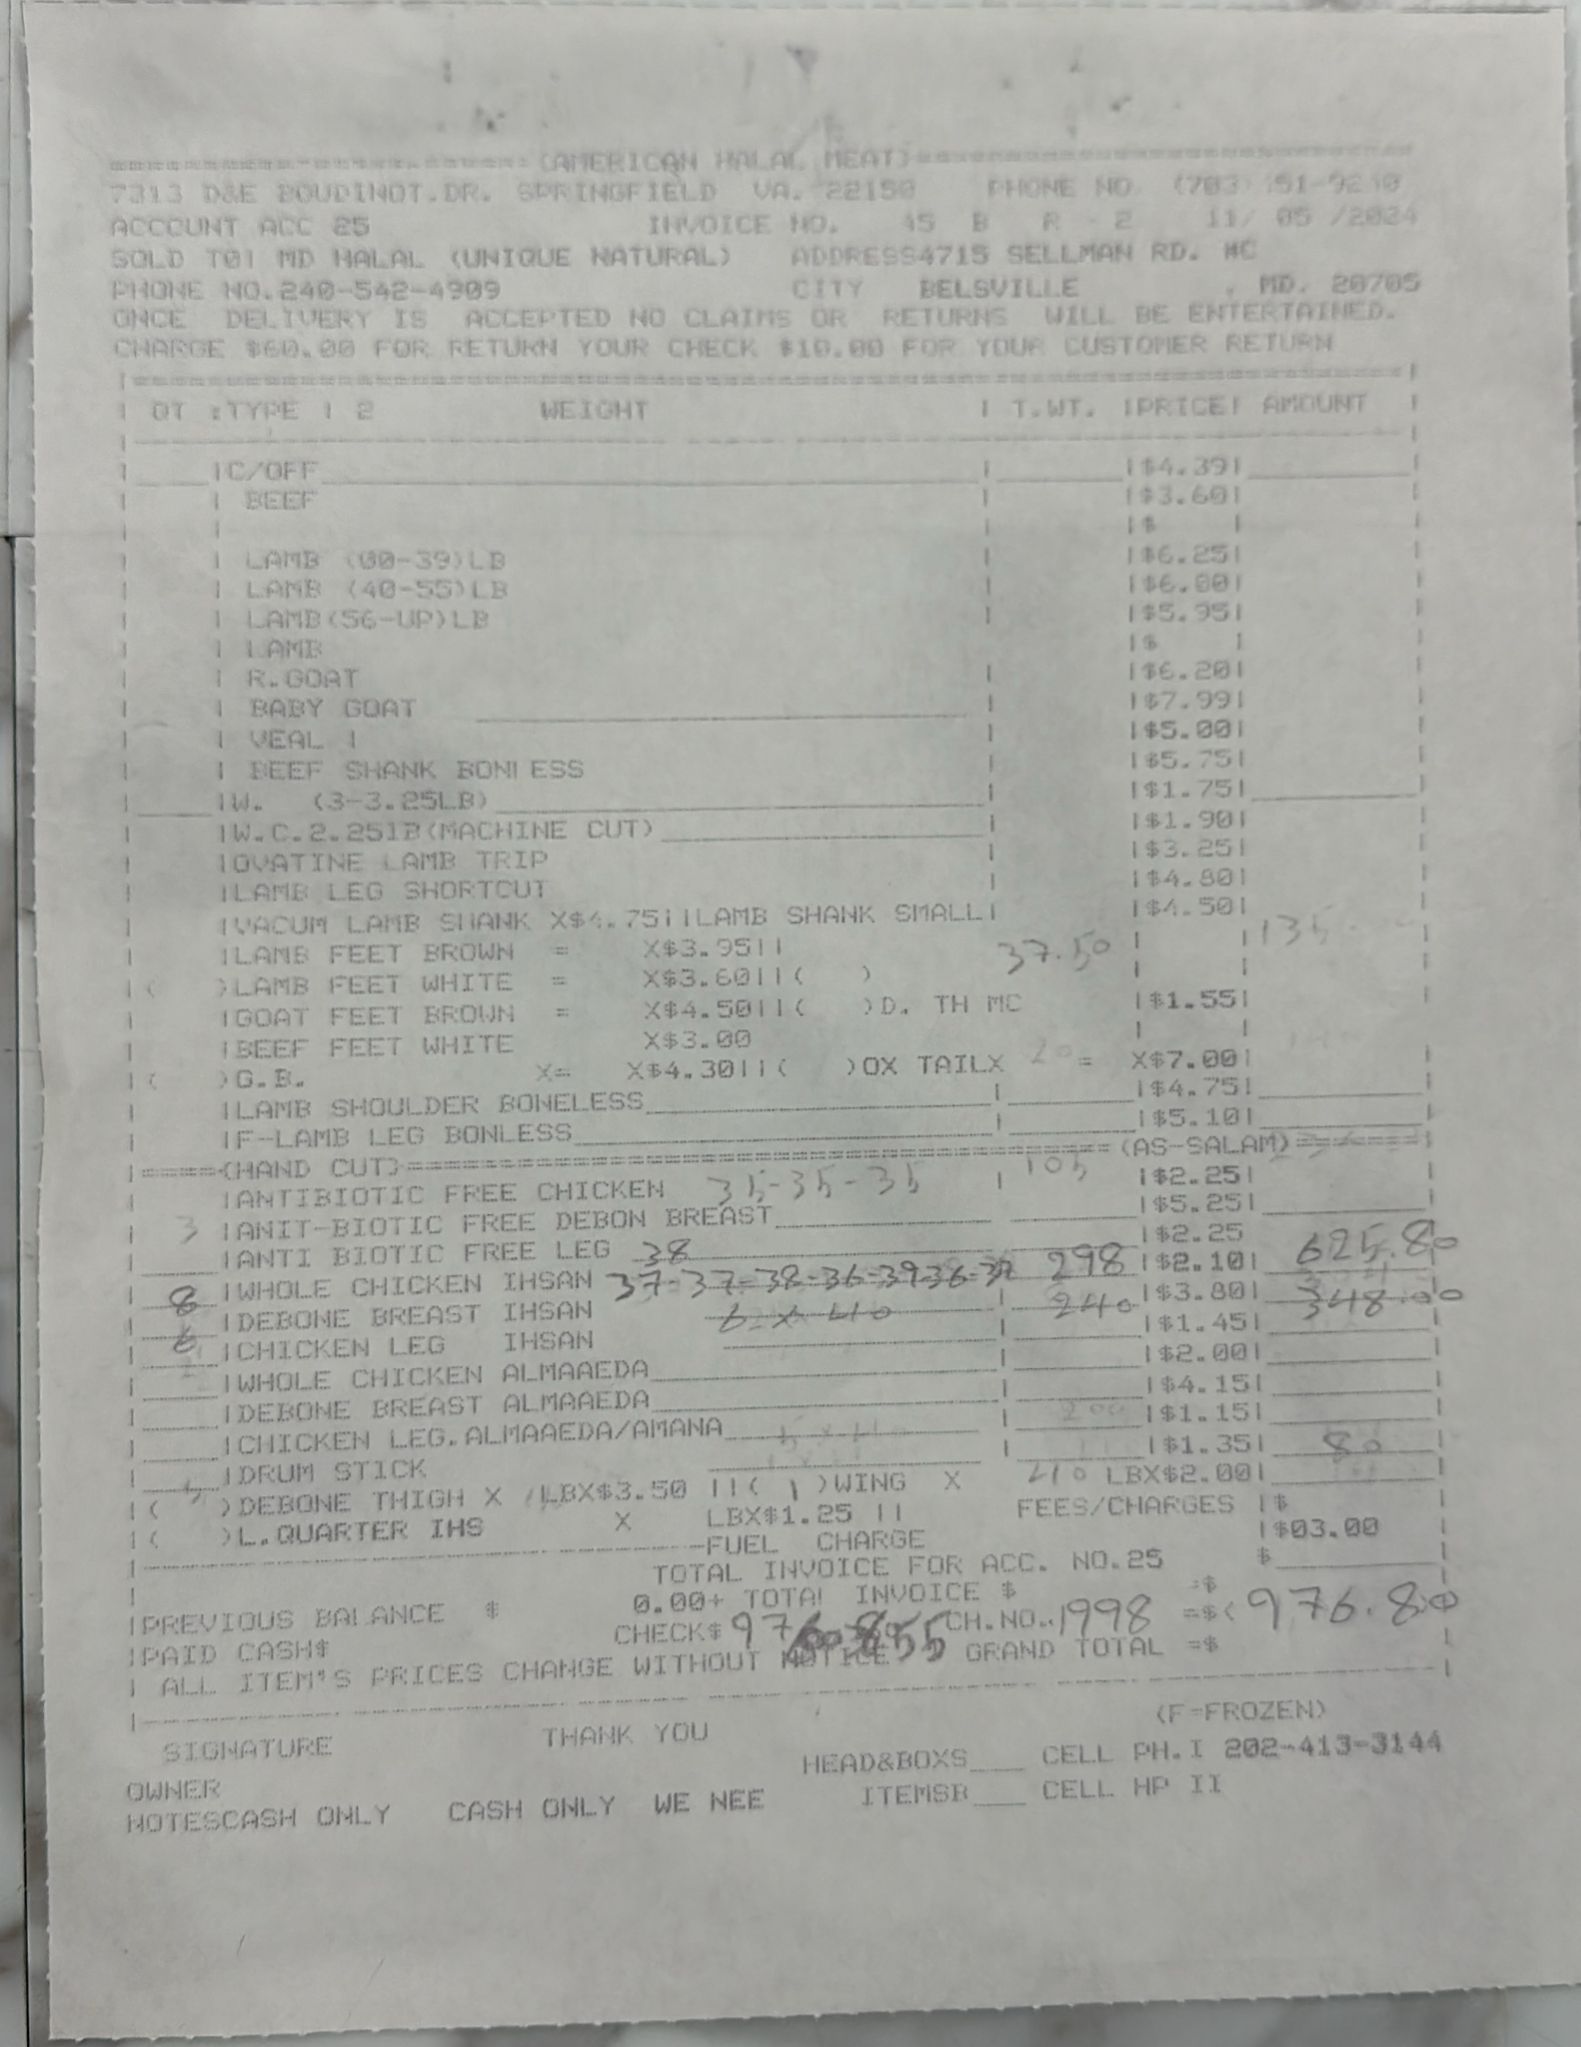 (AMERICAN HALAL MEAT)
7313 D&E BOUDINOT.DR. SPRINGFIELD VA. 22150 PHONE NO (703)
ACCCUNT ACC 25 INVOICE NO. 45 B R - 2 11/ 05 /2024
SOLD TO! MD HALAL (UNIQUE NATURAL) ADDRESS4715 SELLMAN RD. #C
PHONE NO.240-542-4909 CITY BELSVILLE , MD. 20705
ONCE DELIVERY IS ACCEPTED NO CLAIMS OR RETURNS WILL BE ENTERTAINED.
CHARGE $60.00 FOR RETURN YOUR CHECK $10.00 FOR YOUR CUSTOMER RETURN
QT :TYPE | 2 WEIGHT | T.WT. |PRICE| AMOUNT
|C/OFF |$4.39|
| BEEF |$3.60|
|$ |
| LAMB (00-39)LB |$6.25|
| LAMB (40-55)LB |$6.00|
| LAMB(56-UP)LB |$5.95|
| LAMB |$ |
| R.GOAT |$6.20|
| BABY GOAT |$7.99|
| VEAL | |$5.00|
| BEEF SHANK BONLESS |$5.75|
|W. (3-3.25LB) |$1.75|
|W.C.2.25LB(MACHINE CUT) |$1.90|
|OVATINE LAMB TRIP |$3.25|
|LAMB LEG SHORTCUT |$4.80|
|VACUM LAMB SHANK X$4.75||LAMB SHANK SMALL| |$4.50|
|LAMB FEET BROWN = X$3.95|| 37.50 135
|( )LAMB FEET WHITE = X$3.60||( )
|GOAT FEET BROWN = X$4.50||( )D. TH MC |$1.55|
|BEEF FEET WHITE X$3.00
|( )G.B. X= X$4.30||( )OX TAILX 20 = X$7.00|
|LAMB SHOULDER BONELESS |$4.75|
|F-LAMB LEG BONLESS |$5.10|
(HAND CUT) (AS-SALAM)
|ANTIBIOTIC FREE CHICKEN 35-35-35 105 |$2.25|
3 |ANIT-BIOTIC FREE DEBON BREAST |$5.25|
|ANTI BIOTIC FREE LEG 38 |$2.25
8 |WHOLE CHICKEN IHSAN 37-37-38-36-39-36-37 298 |$2.10| 625.80
6 |DEBONE BREAST IHSAN 6 x 40 240 |$3.80| 348.00
|CHICKEN LEG IHSAN |$1.45|
|WHOLE CHICKEN ALMAAEDA |$2.00|
|DEBONE BREAST ALMAAEDA |$4.15|
|CHICKEN LEG.ALMAAEDA/AMANA 200 |$1.15|
|DRUM STICK |$1.35| 80
|( )DEBONE THIGH X LBX$3.50 ||( 1 )WING X 40 LBX$2.00|
|( )L.QUARTER IHS X LBX$1.25 || FEES/CHARGES |$
FUEL CHARGE |$03.00
TOTAL INVOICE FOR ACC. NO.25 $
|PREVIOUS BALANCE $ 0.00+ TOTAL INVOICE $ =$
|PAID CASH$ CHECK$ CH.NO.. 1998 =$< 976.80
| ALL ITEM'S PRICES CHANGE WITHOUT NOTICE GRAND TOTAL =$
(F=FROZEN)
SIGNATURE THANK YOU
HEAD&BOXS CELL PH.I 202-413-3144
OWNER ITEMSB CELL HP II
NOTESCASH ONLY CASH ONLY WE NEE